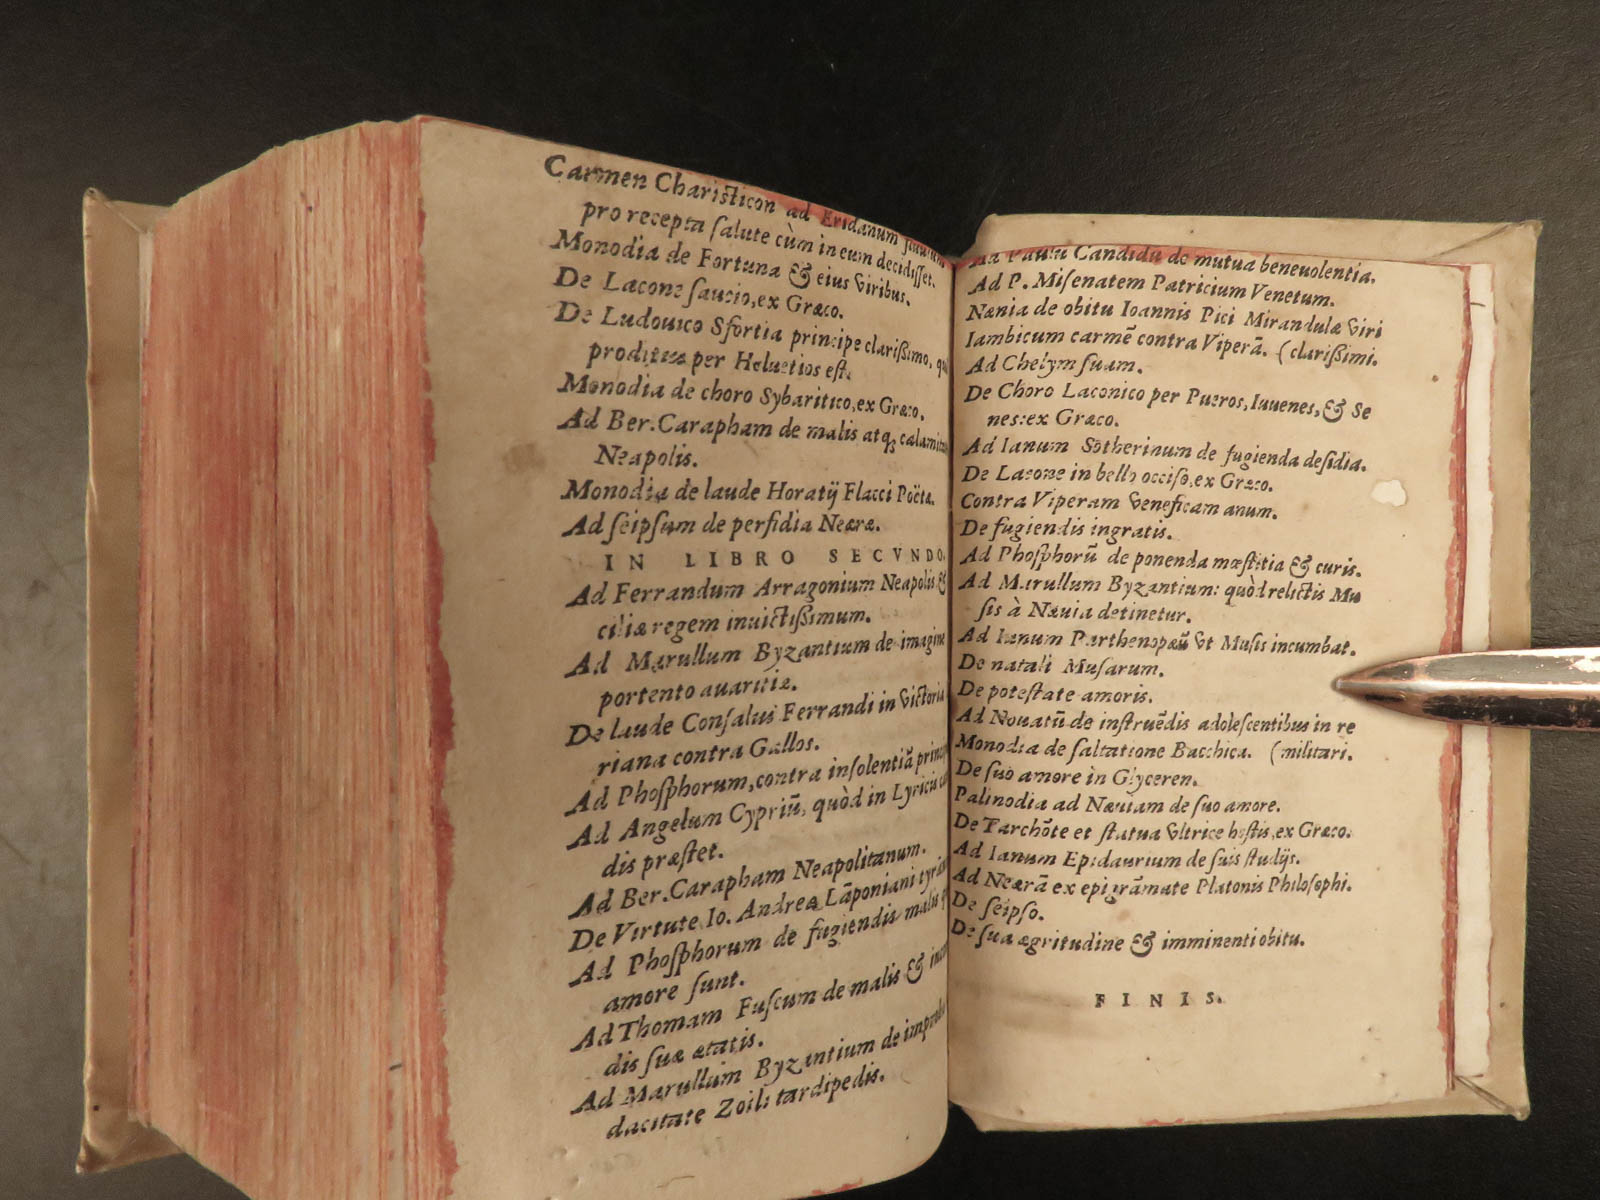 Carmen Charisticon ad Eridanum
pro recepta ſalute cùm in eum decidiſſet.
Monodia de Fortuna & eius viribus.
De Lacone ſaucio, ex Græco.
De Ludouico Sfortia principe clarißimo,
proditus per Heluetios eſt.
Monodia de choro Sybaritico, ex Græco.
Ad Ber. Carapham de malis atq;
Neapolis.
Monodia de laude Horatij Flacci Poëtæ.
Ad ſeipſum de perfidia Neæræ.
IN LIBRO SECVNDO.
Ad Ferrandum Arragonium Neapolis &
ciliæ regem inuictißimum.
Ad Marullum Byzantium de imagine
portento auaritiæ.
De laude Conſalui Ferrandi in victoria
riana contra Gallos.
Ad Phoſphorum, contra inſolentiā
Ad Angelum Cypriū, quòd in Lyricis
dis præſtet.
Ad Ber. Carapham Neapolitanum.
De Virtute Io. Andreæ Lāponiani
Ad Phoſphorum de fugiendis malis
amore ſunt.
Ad Thomam Fuſcum de malis &
dis ſuæ ætatis.
Ad Marullum Byzantium de
dacitate Zoili tardipedis.
Ad Paulū Candidū de mutua beneuolentia.
Ad P. Miſenatem Patricium Venetum.
Nænia de obitu Ioannis Pici Mirandulæ viri
Iambicum carmē contra Viperā. (clarißimi.
Ad Chelym ſuam.
De Choro Laconico per Pueros, Iuuenes, & Se
nes: ex Græco.
Ad Ianum Sōtherinum de fugienda deſidia.
De Lacone in bello occiſo, ex Græco.
Contra Viperam veneficam anum.
De fugiendis ingratis.
Ad Phoſphorū de ponenda mœſtitia & curis.
Ad Marullum Byzantium: quòd relictis Mu
ſis à Næuia detinetur.
Ad Ianum Parthenopæū vt Muſis incumbat.
De natali Muſarum.
De poteſtate amoris.
Ad Nouatū de inſtruēdis adoleſcentibus in re
Monodia de ſaltatione Bacchica. (militari.
De ſuo amore in Glyceren.
Palinodia ad Næuiam de ſuo amore.
De Tarchōte et ſtatua vltrice hoſtis, ex Græco.
Ad Ianum Epidaurium de ſuis ſtudijs.
Ad Neærā ex epigrāmate Platonis Philoſophi.
De ſeipſo.
De ſua ægritudine & imminenti obitu.
FINIS.